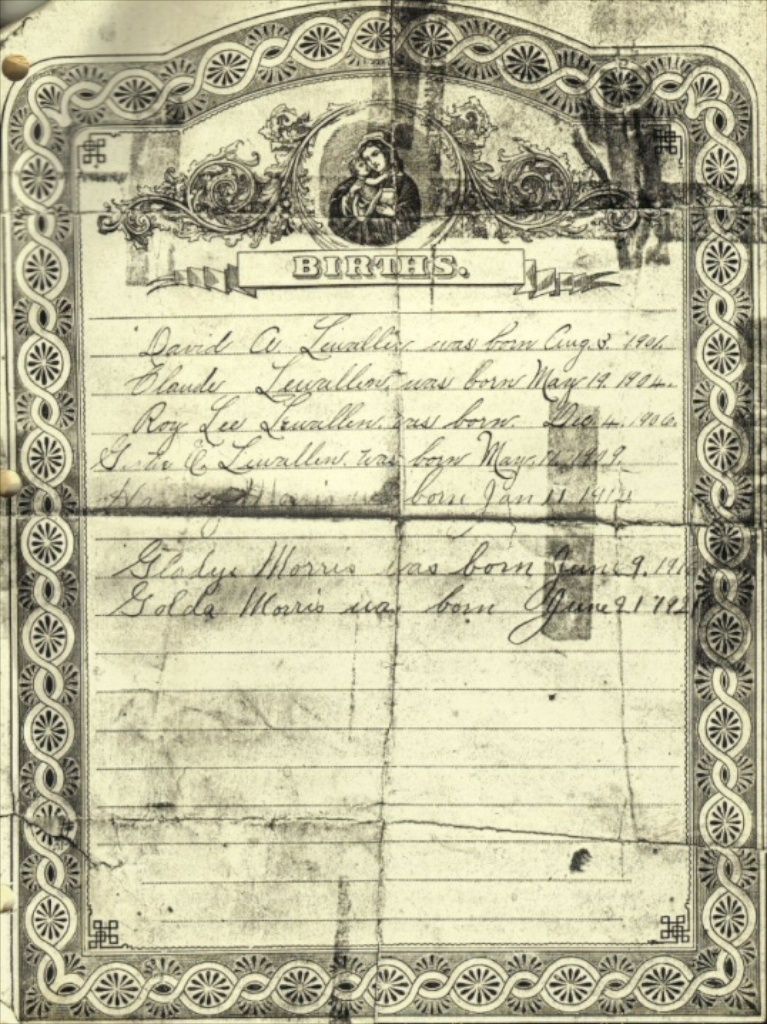 BIRTHS.
David A Lewallen was born Aug. 3. 1901.
Claude Lewallen. was born May 19. 1904.
Roy Lee Lewallen. was born. Dec. 4. 1906.
E. Lewallen. was born May. 11. 1909.
Morris was born Jan 11 1914
Gladys Morris was born June 9. 191
Golda Morris was born June 21 1921